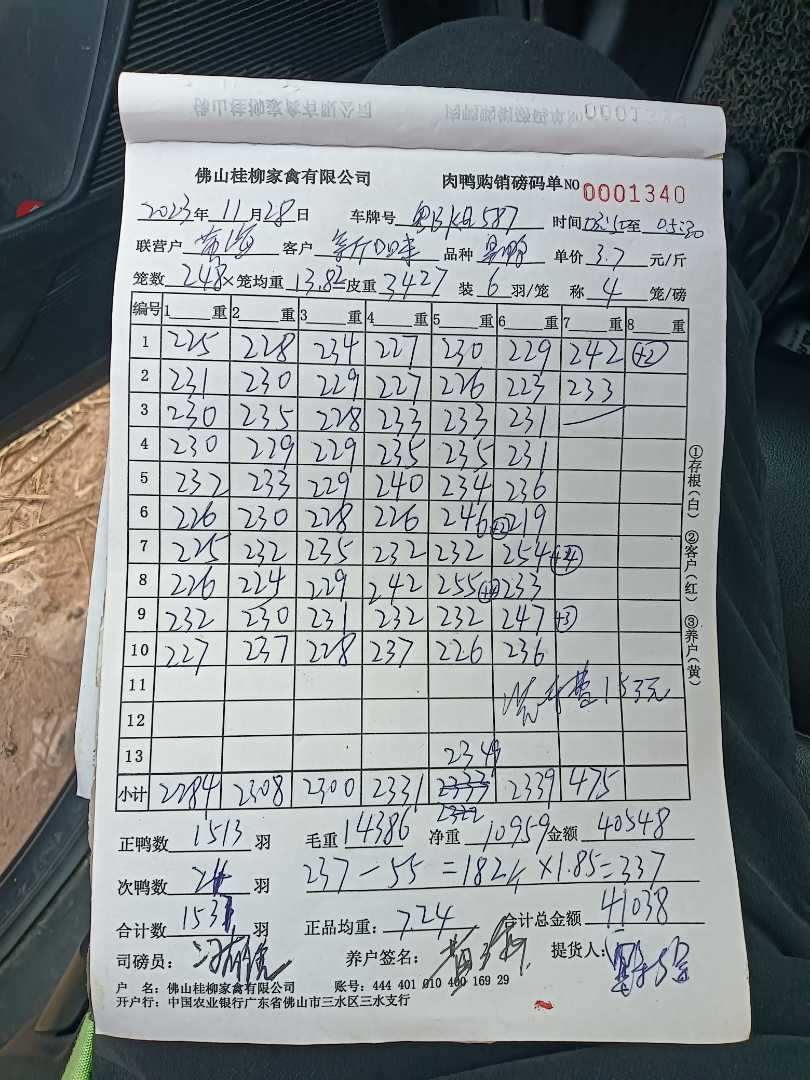 佛山桂柳家禽有限公司 肉鸭购销磅码单 NO 0001340
2023年 11月28日 车牌号 粤BKQ587 时间 至 05:30
联营户 客户 品种 单价 3.7 元/斤
笼数 248 ×笼均重 13.82 皮重 3427 装 6 羽/笼 称 4 笼/磅
编号 1 重 2 重 3 重 4 重 5 重 6 重 7 重 8 重
1 225 228 234 227 230 229 242 +2
2 231 230 229 227 226 223 233
3 230 235 228 233 233 231
4 230 229 229 235 235 231
5 232 233 229 240 234 236
6 226 230 228 226 246 +2 219
7 225 232 235 232 232 254 +4
8 226 224 229 242 255 233
9 232 230 231 232 232 247 +3
10 227 237 228 237 226 236
11 费153元
12
13 2349
小计 2284 2308 2300 2331 2333 2339 475
2322
正鸭数 1513 羽 毛重 14386 净重 10959 金额 40548
次鸭数 羽 237-55=182斤×1.85=337
合计数 羽 正品均重: 7.24 合计总金额 41038
司磅员: 养户签名: 提货人:
户 名: 佛山桂柳家禽有限公司 账号: 444 401 010 400 169 29
开户行: 中国农业银行广东省佛山市三水区三水支行
①存根(白) ②客户(红) ③养户(黄)